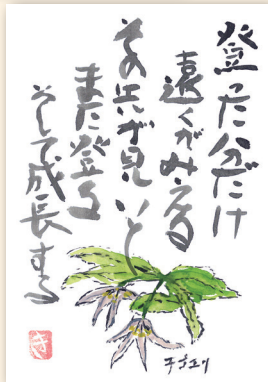 登った分だけ
遠くがみえる
その先が見いと
また登る
そして成長する